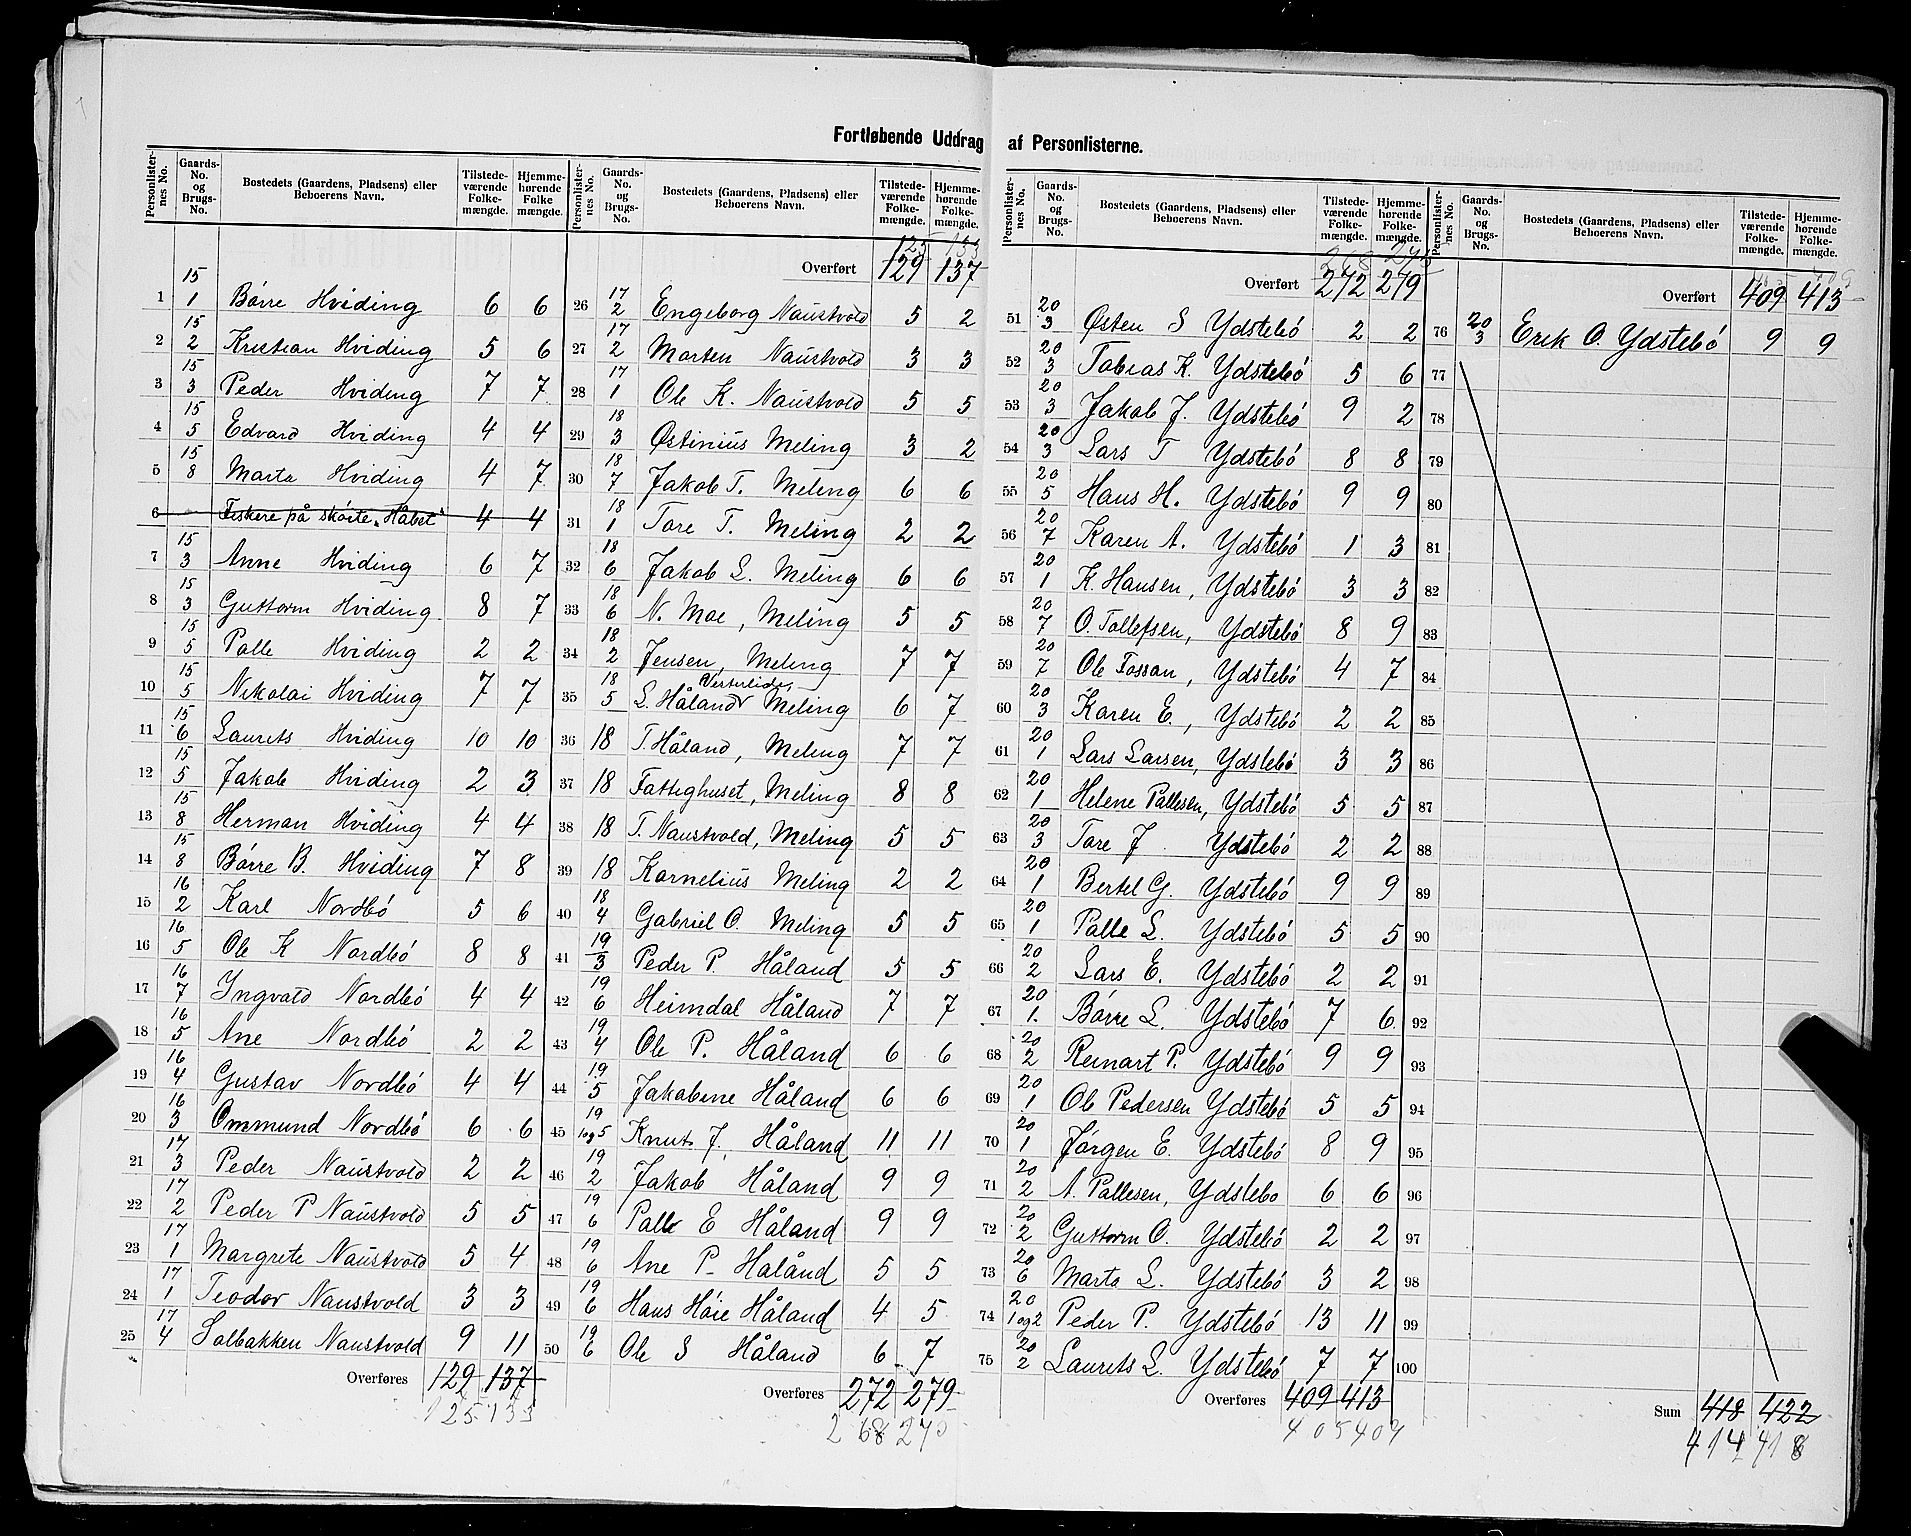 Fortløbende Uddrag af Personlisterne.
Personlisternes No. | Gaards-No. og Brugs-No. | Bostedets (Gaardens, Pladsens) eller Beboerens Navn. | Tilstedeværende Folkemængde. | Hjemmehørende Folkemængde.
1 | 15 1 | Börre Hviding | 6 | 6
2 | 15 2 | Kristian Hviding | 5 | 6
3 | 15 3 | Peder Hviding | 7 | 7
4 | 15 5 | Edvard Hviding | 4 | 4
5 | 15 8 | Marta Hviding | 4 | 7
6 | Fiskere på skóite „Håbet“ | 4 | 4
7 | 15 3 | Anne Hviding | 6 | 7
8 | 15 3 | Guttorm Hviding | 8 | 7
9 | 15 5 | Palle Hviding | 2 | 2
10 | 15 5 | Nikolai Hviding | 7 | 7
11 | 15 6 | Laurits Hviding | 10 | 10
12 | 15 5 | Jakob Hviding | 2 | 3
13 | 15 8 | Herman Hviding | 4 | 4
14 | 15 8 | Börre B. Hviding | 7 | 8
15 | 16 2 | Karl Nordbó | 5 | 6
16 | 16 5 | Ole K Nordbó | 8 | 8
17 | 16 7 | Ingvald Nordbó | 4 | 4
18 | 16 5 | Ane Nordbó | 2 | 2
19 | 16 4 | Gustav Nordbó | 4 | 4
20 | 16 3 | Ommund Nordbó | 6 | 6
21 | 17 3 | Peder Naustvold | 2 | 2
22 | 17 2 | Peder P Naustvold | 5 | 5
23 | 17 1 | Margrete Naustvold | 5 | 4
24 | 17 1 | Teodor Naustvold | 3 | 3
25 | 17 4 | Solbakken Naustvold | 9 | 11
Overføres 129 137
125 133
Personlisternes No. | Gaards-No. og Brugs-No. | Bostedets (Gaardens, Pladsens) eller Beboerens Navn. | Tilstedeværende Folkemængde. | Hjemmehørende Folkemængde.
125 133
Overført 129 137
26 | 17 2 | Engeborg Naustvold | 5 | 2
27 | 17 2 | Morten Naustvold | 3 | 3
28 | 17 1 | Ole K. Naustvold | 5 | 5
29 | 18 3 | Østinius Meling | 3 | 2
30 | 18 7 | Jakob T. Meling | 6 | 6
31 | 18 1 | Tore T. Meling | 2 | 2
32 | 18 6 | Jakob L. Meling | 6 | 6
33 | 18 6 | N. Moe, Meling | 5 | 5
34 | 18 2 | Jensen, Meling | 7 | 7
Vesterlide,
35 | 18 5 | L. Håland Meling | 6 | 7
36 | 18 | T. Håland, Meling | 7 | 7
37 | 18 | Fattighuset, Meling | 8 | 8
38 | 18 | T. Naustvold, Meling | 5 | 5
39 | 18 | Kornelius Meling | 2 | 2
40 | 18 4 | Gabriel O. Meling | 5 | 5
41 | 19 3 | Peder P. Håland | 5 | 5
42 | 19 6 | Heimdal Håland | 7 | 7
43 | 19 4 | Ole P. Håland | 6 | 6
44 | 19 5 | Jakobine Håland | 6 | 6
45 | 19 1og5 | Knut J. Håland | 11 | 11
46 | 19 2 | Jakob Håland | 9 | 9
47 | 19 6 | Palle E Håland | 9 | 9
48 | 19 6 | Ane P. Håland | 5 | 5
49 | 19 6 | Hans Hóie Håland | 4 | 5
50 | 19 6 | Ole S Håland | 6 | 7
Overføres 272 279
268 275
Personlisternes No. | Gaards-No. og Brugs-No. | Bostedets (Gaardens, Pladsens) eller Beboerens Navn. | Tilstedeværende Folkemængde. | Hjemmehørende Folkemængde.
268 275
Overført 272 279
51 | 20 3 | Østen S Ydstebó | 2 | 2
52 | 20 3 | Tobias K. Ydstebó | 5 | 6
53 | 20 3 | Jakob J. Ydstebó | 9 | 2
54 | 20 3 | Lars T Ydstebó | 8 | 8
55 | 20 5 | Hans H. Ydstebó | 9 | 9
56 | 20 7 | Karen A. Ydstebó | 1 | 3
57 | 20 1 | K. Hansen, Ydstebó | 3 | 3
58 | 20 7 | O. Tollefsen, Ydstebó | 8 | 9
59 | 20 7 | Ole Fossan, Ydstebó | 4 | 7
60 | 20 3 | Karen E., Ydstebó | 2 | 2
61 | 20 1 | Lars Larsen, Ydstebó | 3 | 3
62 | 20 1 | Helene Pallesen, Ydstebó | 5 | 5
63 | 20 3 | Tore J. Ydstebó | 2 | 2
64 | 20 1 | Bertel G. Ydstebó | 9 | 9
65 | 20 1 | Palle L. Ydstebó | 5 | 5
66 | 20 2 | Lars E. Ydstebó | 2 | 2
67 | 20 1. | Börre L. Ydstebó | 7 | 6
68 | 20 2 | Reinart P. Ydstebó | 9 | 9
69 | 20 1 | Ole Pedersen Ydstebó | 5 | 5
70 | 20 1 | Jörgen E. Ydstebó | 8 | 9
71 | 20 2 | A. Pallesen, Ydstebo | 6 | 6
72 | 20 2 | Guttorm O. Ydstebó | 2 | 2
73 | 20 6 | Marta L. Ydstebó | 3 | 2
74 | 20 1og2 | Peder P. Ydstebó | 13 | 11
75 | 20 2 | Laurits L. Ydstebó | 7 | 7
Overføres 409 413
405 409
Personlisternes No. | Gaards-No. og Brugs-No. | Bostedets (Gaardens, Pladsens) eller Beboerens Navn. | Tilstedeværende Folkemængde. | Hjemmehørende Folkemængde.
405 409
Overført 409 413
76 | 20 3 | Erik O. Ydstebó | 9 | 9
77
78
79
80
81
82
83
84
85
86
87
88
89
90
91
92
93
94
95
96
97
98
99
100
Sum 418 422
414 418